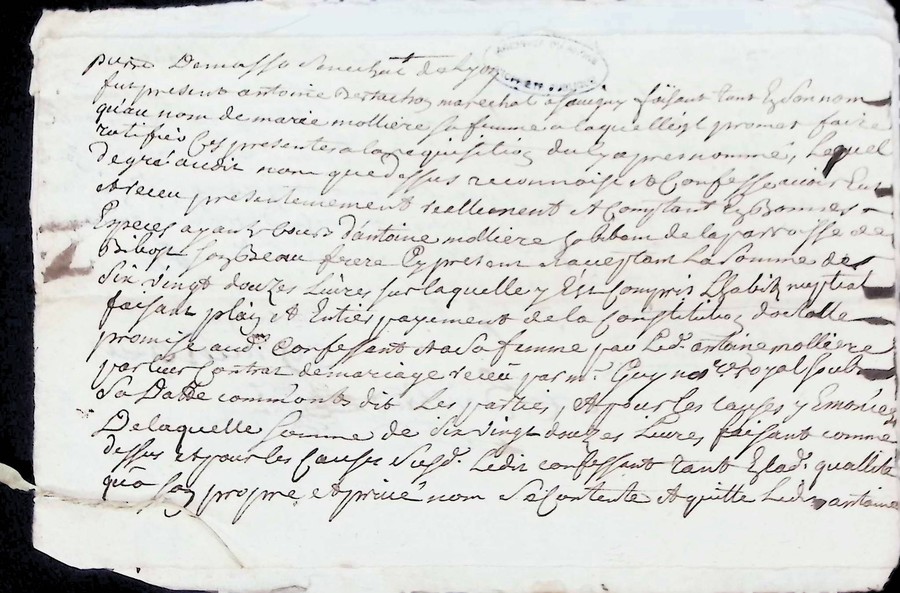 pierre Demasso Senechal de Lyon
fut present antoine Bertachon marechal a Savigny faisant tant En Son nom
qu'au nom de marie molliere Sa femme a laquelle il promet faire
ratifier Ces presentes a la requisition du Cy apres nommé, Lequel
de gré audit nom que dessus reconnoist et Confesse avoir Eu
et receu presentement réellement et Comptant En Bonnes
Especes ayant Cours d'antoine molliere habitant de la parroisse de
Bibost Son Beau frere Cy present et acceptant La Somme de
Six vingt douzes Livres Sur laquelle y Est Compris L'habit nuptial
faisant plain et Entier payement de la Constitution dotalle
promise aud. Confessant et a Sa femme par Led. antoine molliere
par leur Contrat de mariage receu par mr. Guy nore. royal Soub
Sa Datte comm'ont dit Les parties, et pour les Causes y Enoncées
De laquelle Somme de Six vingt douzes Livres, faisant comme
dessus et pour les Causes Susd. Ledit confessant tant En lad. quallité
qu'a Son propre et privé nom Se Contente et quitte Ledit antoine